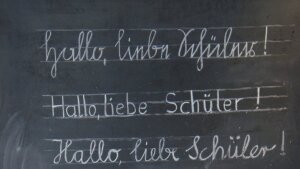 Hallo, liebe Schüler!
Hallo, liebe Schüler !
Hallo, liebe Schüler!